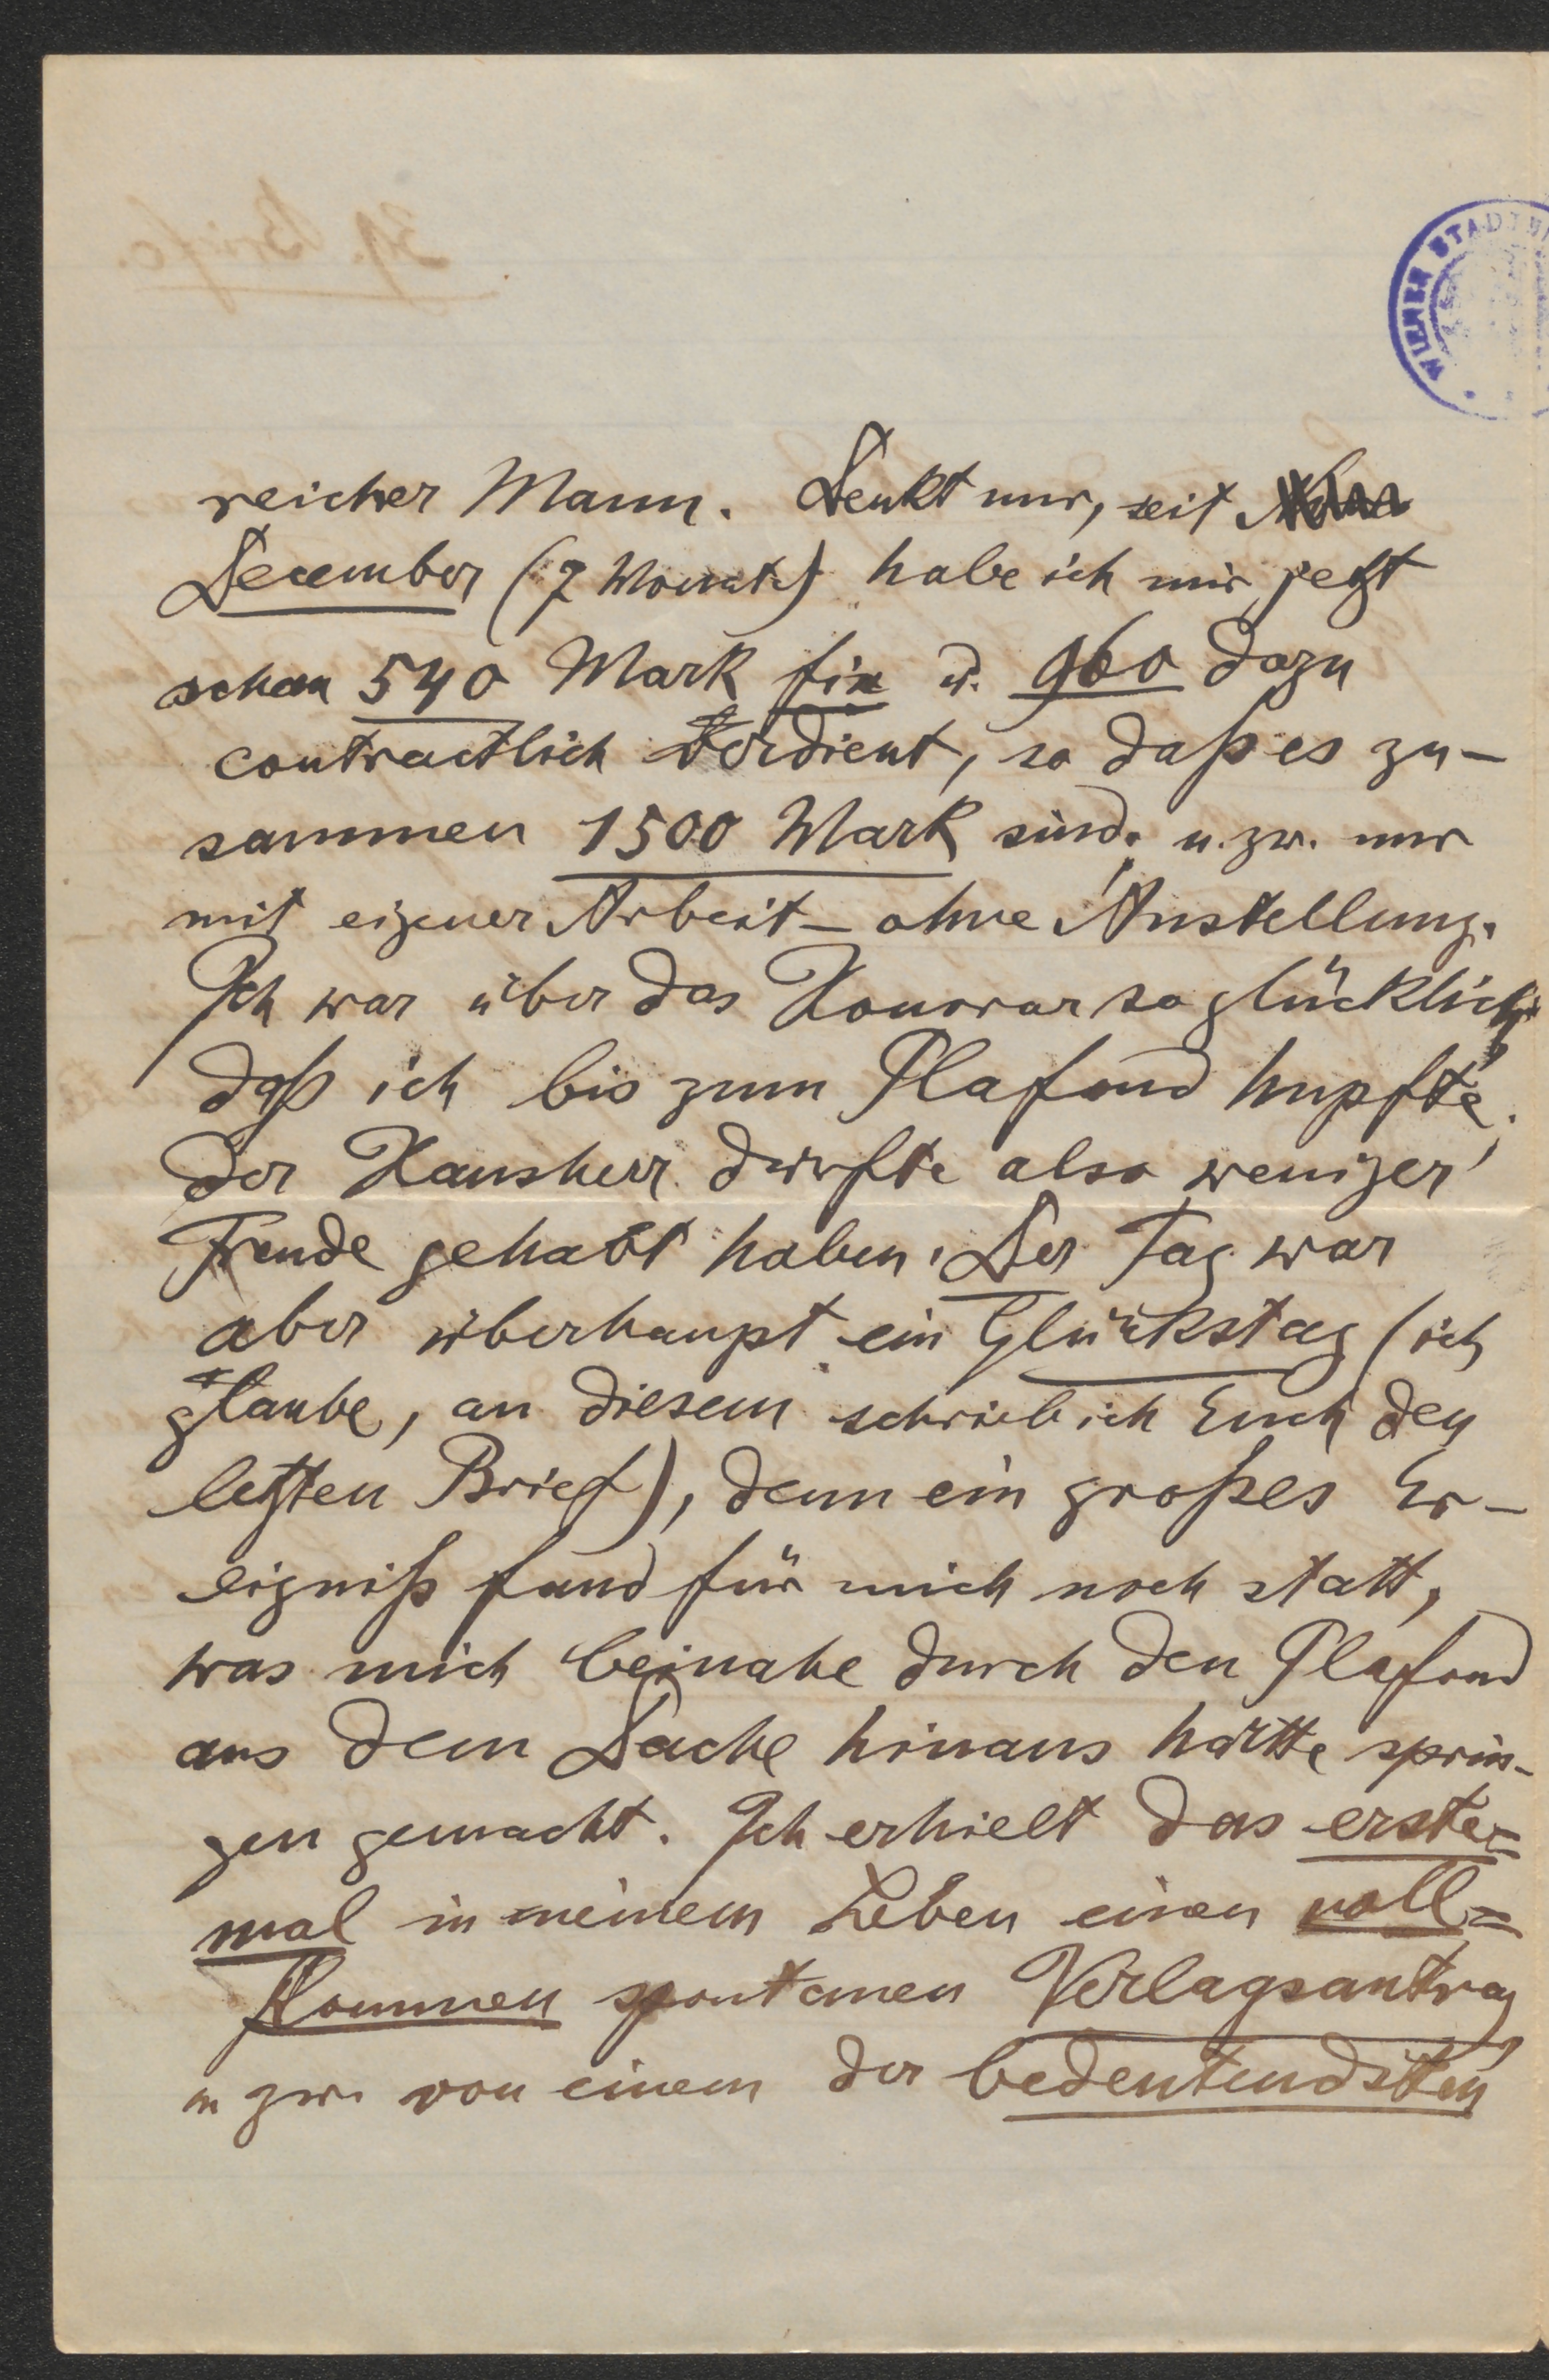 WIENER STADTBI
reicher Mann. Denkt nur, seit
December (7 Monate) habe ich mir jetzt
schon 540 Mark fix u. 960 dazu
contractlich verdient, so daß es zu-
sammen 1500 Mark sind, u. zw. nur
mit eigener Arbeit – ohne Anstellung.
Ich war über das Honorar so glücklich,
daß ich bis zum Plafond hupfte,
der Hausherr durfte also weniger
Freude gehabt haben. Der Tag war
aber überhaupt ein Glückstag (ich
glaube, an diesem schrieb ich Euch den
letzten Brief), denn ein großes Er-
eigniß fand für mich noch statt,
was mich beinahe durch den Plafond
aus dem Dache hinaus hätte sprin-
gen gemacht. Ich erhielt das erste=
mal in meinem Leben einen voll=
kommen spontanen Verlagsantrag,
u zw. von einem der bedeutendsten